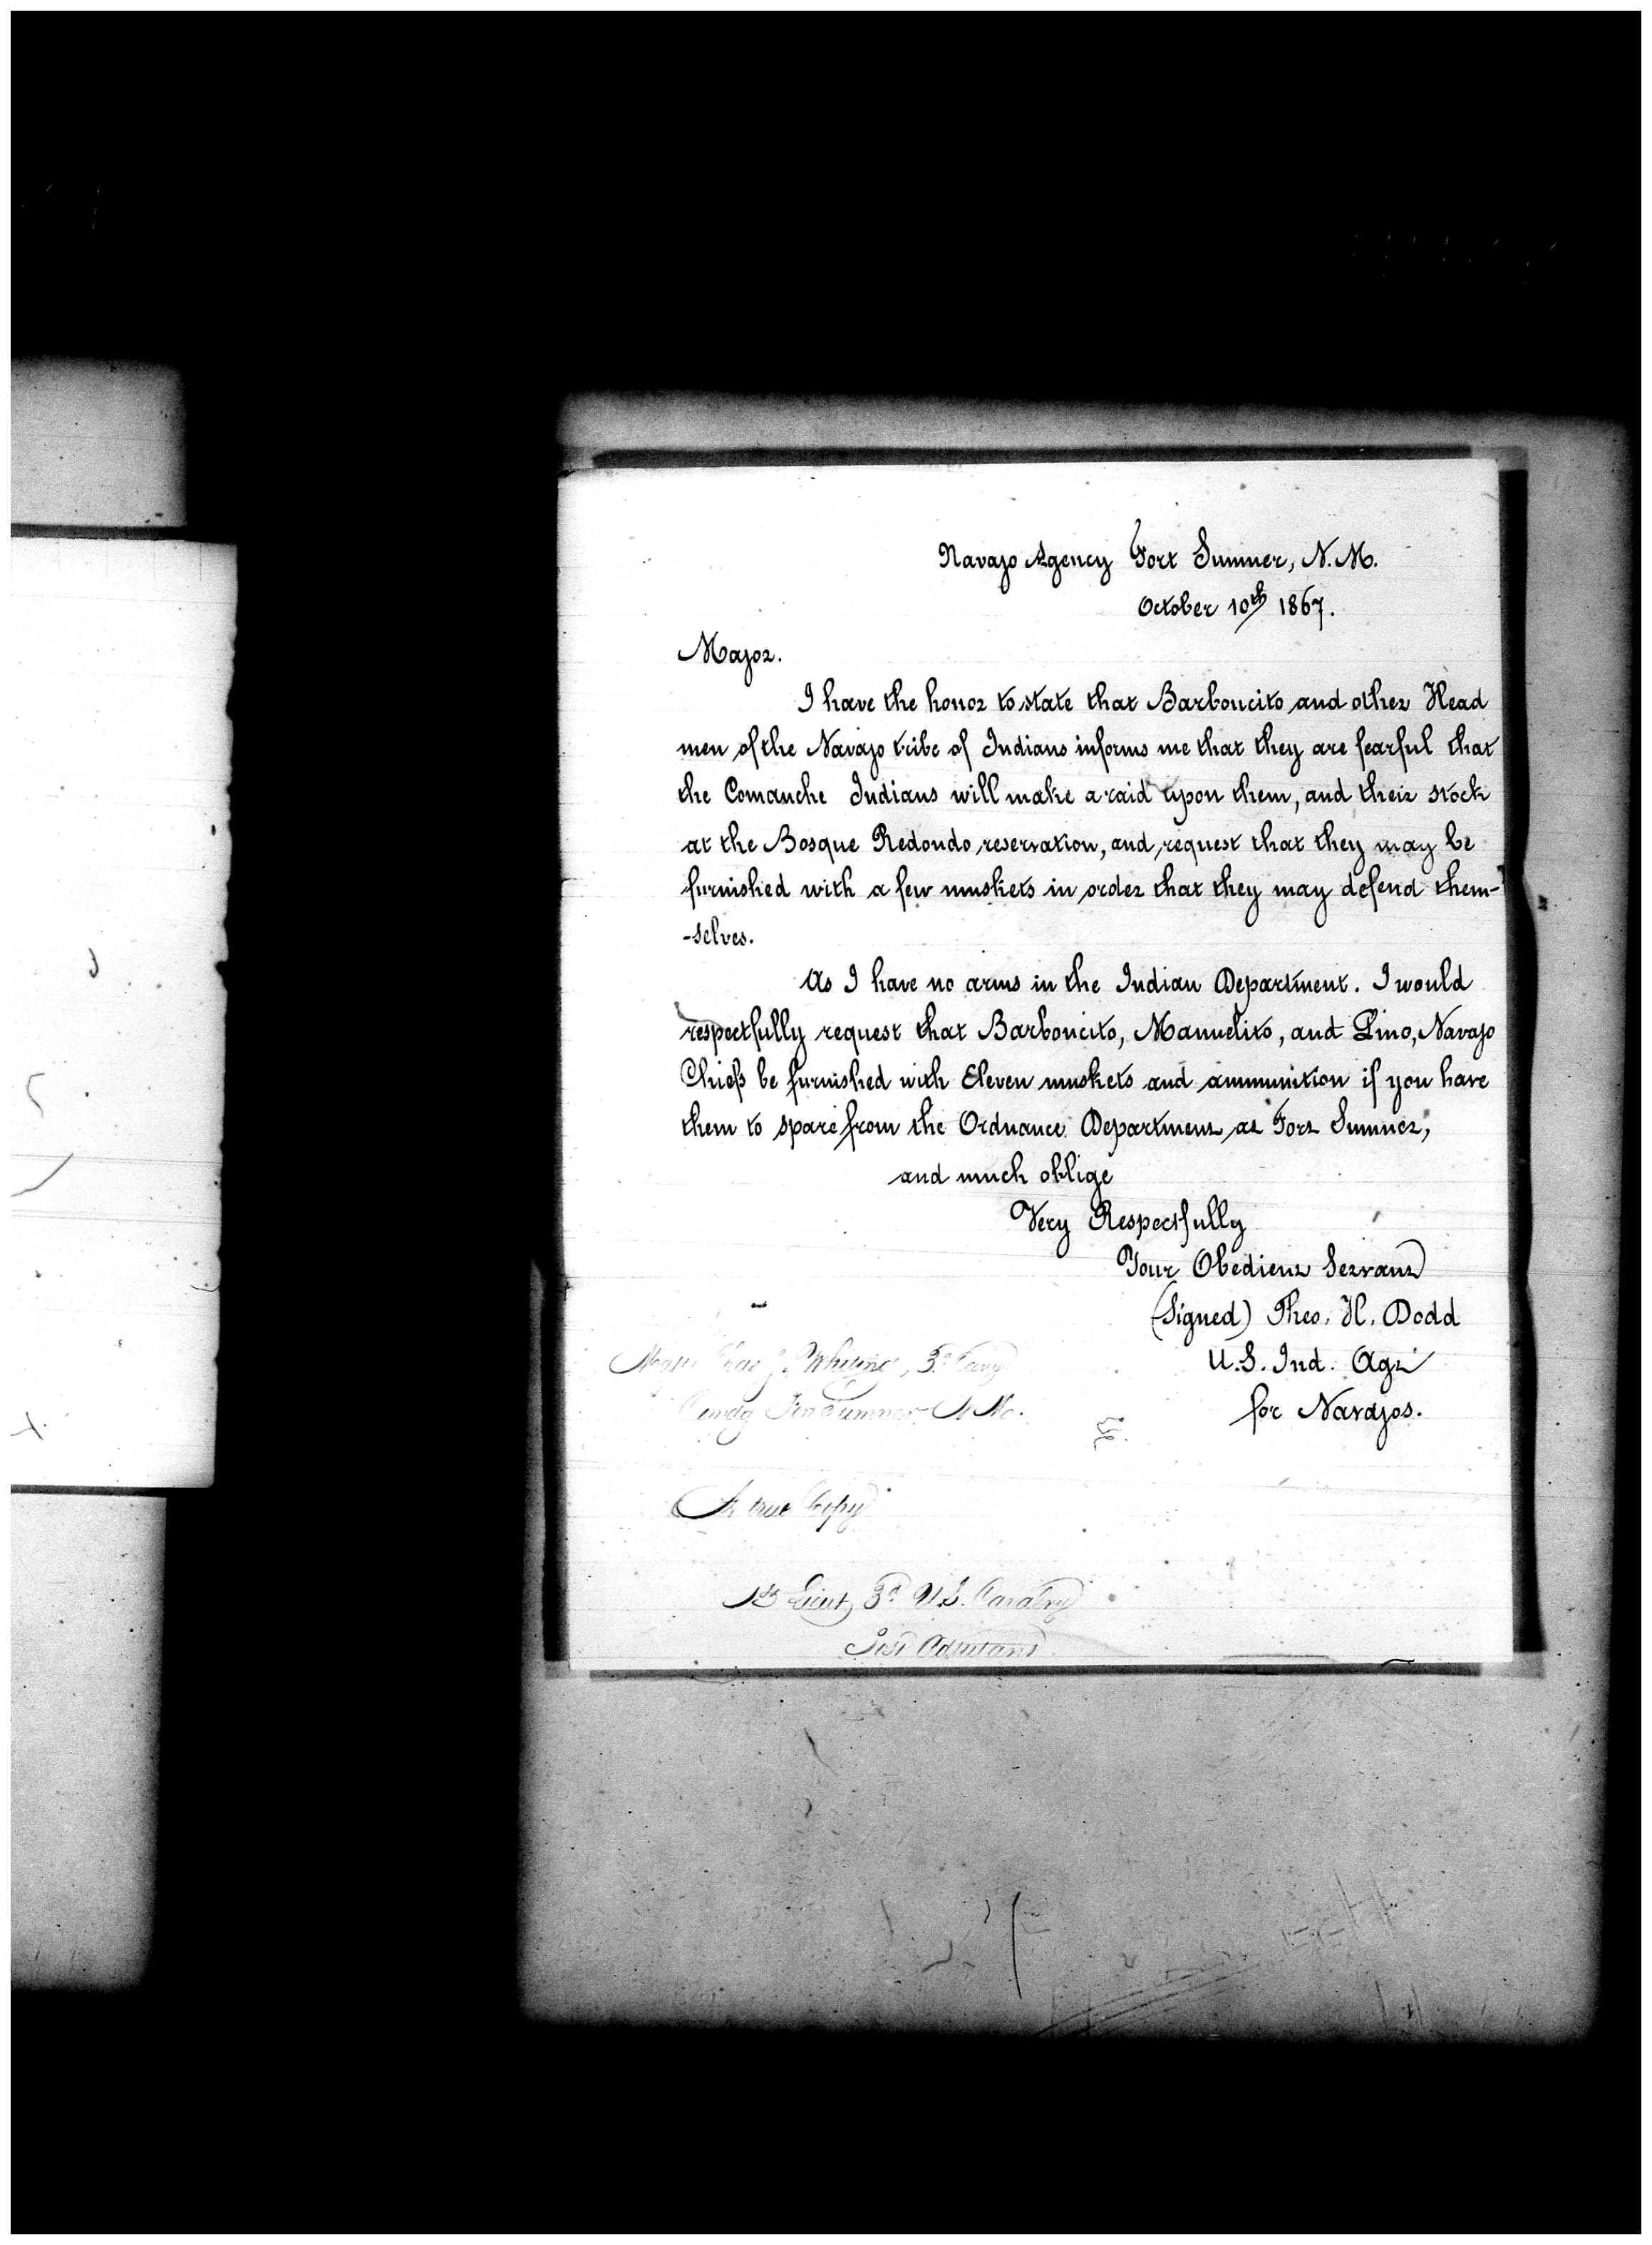 Navajo Agency Fort Sumner, N.M.
October 10th 1867.
Major.
I have the honor to state that Barboncito and other Head
men of the Navajo tribe of Indians informs me that they are fearful that
the Comanche Indians will make a raid upon them, and their stock
at the Bosque Redondo reservation, and request that they may be
furnished with a few muskets in order that they may defend them-
-selves.
As I have no arms in the Indian Department. I would
respectfully request that Barboncito, Manuelito, and Lino, Navajo
Chiefs be furnished with Eleven muskets and ammunition if you have
them to spare from the Ordnance Department at Fort Sumner,
and much oblige
Very Respectfully
Your Obedient Servant
(Signed) Theo. H. Dodd
U.S. Ind. Agt
for Navajos.
Whiting, 3d Cavy
Comdg Fort Sumner N.M.
A true Copy
1st Lieut, 3d U.S. Cavalry
Post Adjutant